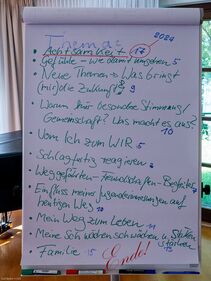 Themen:
• Achtsamkeit 17 2024
• Gefühle – wie damit umgehen 5
• Neue Themen – Was bringt
(mir) die Zukunft? 9
• Warum hier besondere Stimmung/
Gemeinschaft? Was macht es aus? 10
• Vom Ich zum WIR 5
• Schlagfertig reagieren 6
• Weggefährten – Freundschaften – Begleiter
• Einfluss meiner Jugenderinnerungen auf
heutigen Weg 10
• Mein Weg zum Leben 11
• Meine Schwächen schwächen u. Stärken
stärken 15
• Familie 15 Ende!